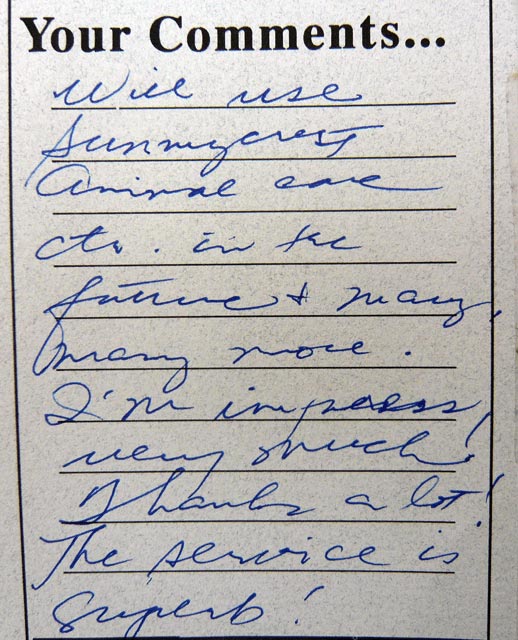 Your Comments...
Will use
Sunnycrest
Animal care
ctr. in the
future & many,
many more.
I'm impress
very much!
Thanks a lot!
The service is
superb!